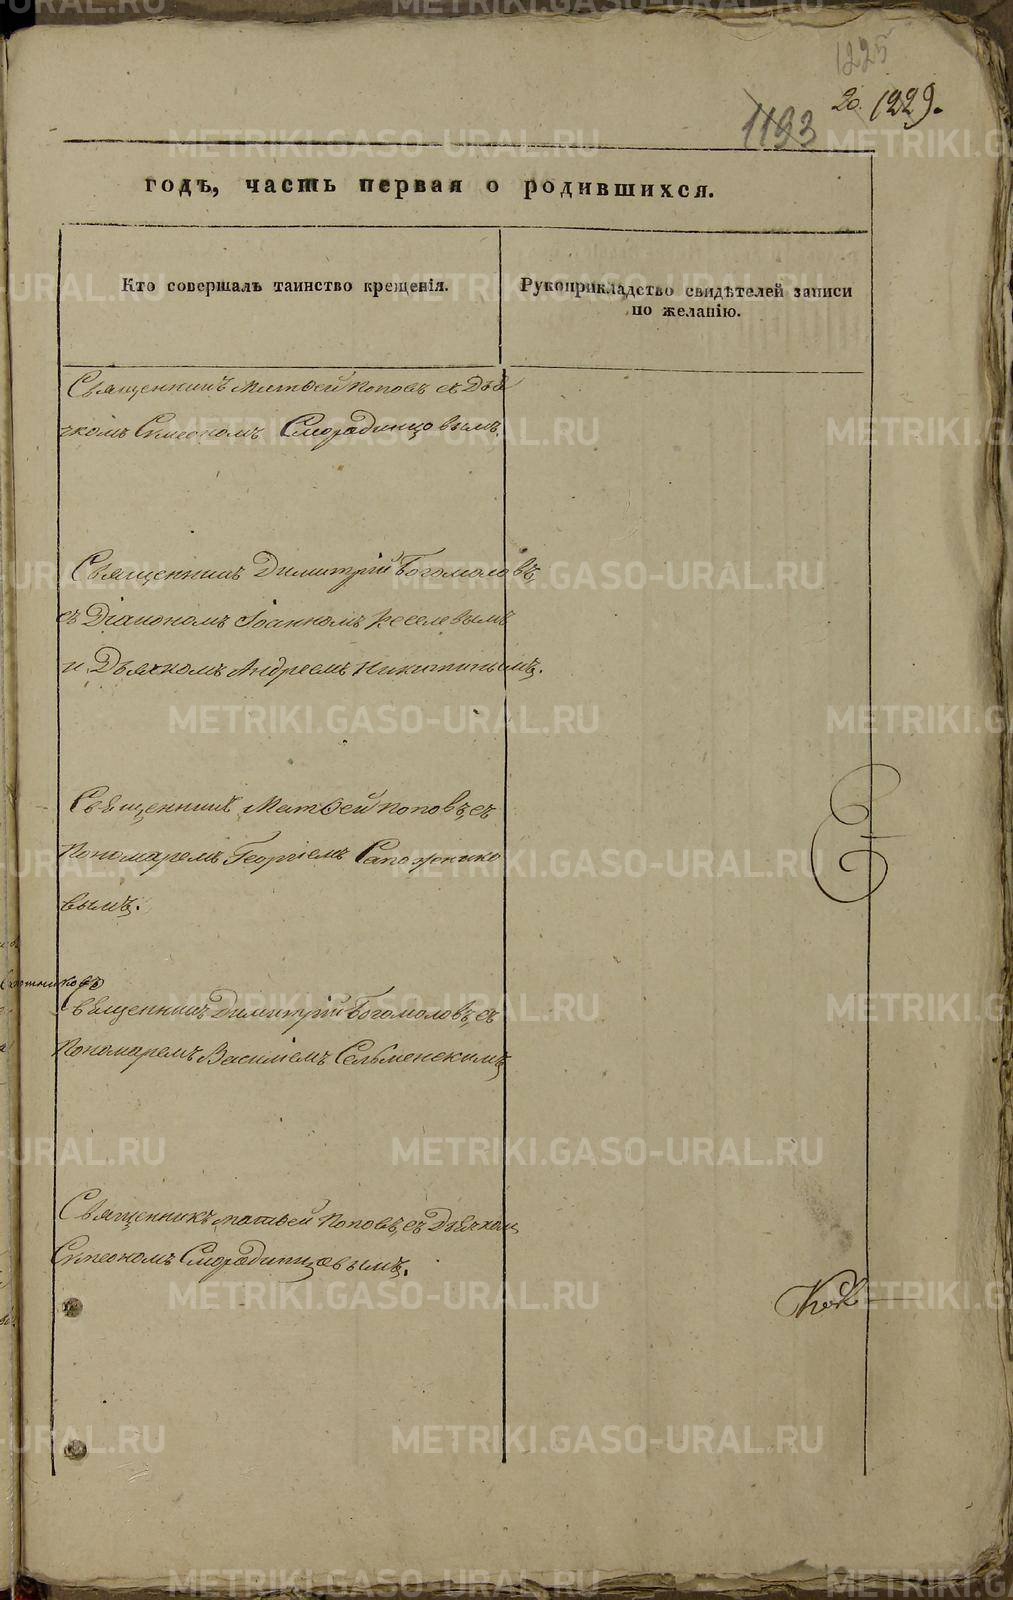 1225
20. 1229.
1193
годъ, часть первая о родившихся.
Кто совершалъ таинство крещенія.
Рукоприкладство свидѣтелей записи
по желанію.
Священникъ Матѳей Поповъ съ Дья
чкомъ Симеономъ Смородинцовымъ.
Священникъ Димитрій Богомоловъ,
съ Діакономъ Іоанномъ Киселевымъ
и Дьячкомъ Андреемъ Никитинымъ.
Священникъ Матѳей Поповъ, съ
Пономаремъ Георгіемъ Сапожнико
вымъ.
Священникъ Димитрій Богомоловъ, съ
Пономаремъ Василіемъ Сельменскимъ
Священникъ Матѳей Поповъ, съ Дьячкомъ
Симеономъ Смородинцовымъ.
METRIKI.GASO-URAL.RU